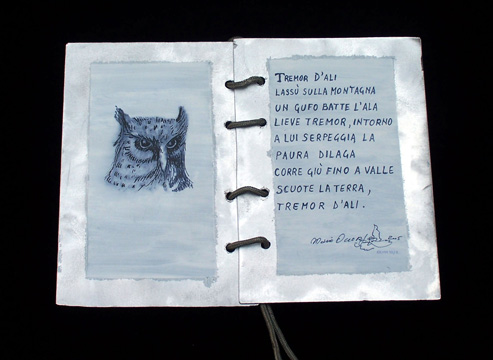 TREMOR D'ALI
LASSÙ SULLA MONTAGNA
UN GUFO BATTE L'ALA
LIEVE TREMOR, INTORNO
A LUI SERPEGGIA LA
PAURA DILAGA
CORRE GIÙ FINO A VALLE
SCUOTE LA TERRA,
TREMOR D'ALI.